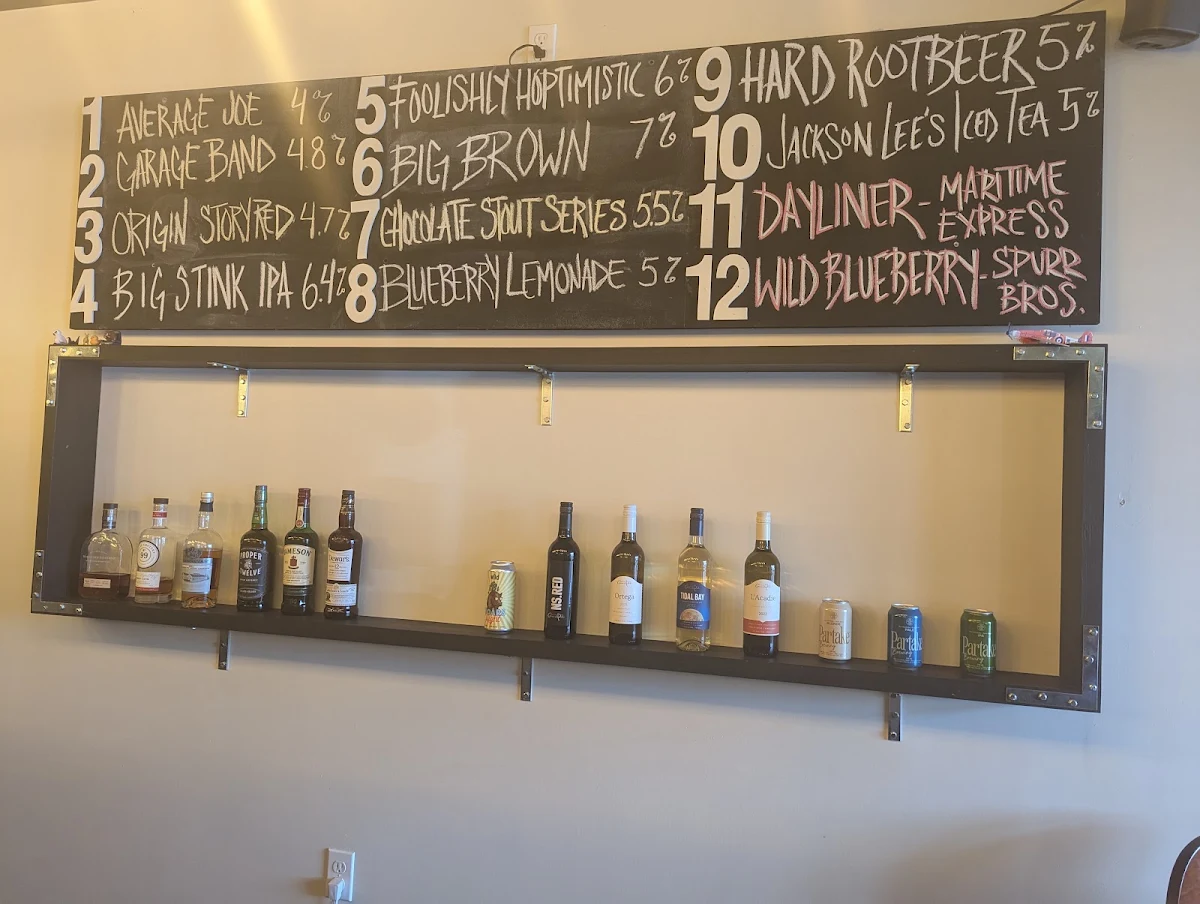 1 AVERAGE JOE 4%
2 GARAGE BAND 4.8%
3 ORIGIN STORY RED 4.7%
4 BIG STINK IPA 6.4%
5 FOOLISHLY HOPTIMISTIC 6%
6 BIG BROWN 7%
7 CHOCOLATE STOUT SERIES 5.5%
8 BLUEBERRY LEMONADE 5%
9 HARD ROOTBEER 5%
10 JACKSON LEE'S ICED TEA 5%
11 DAYLINER - MARITIME
EXPRESS
12 WILD BLUEBERRY - SPURR
BROS.
99
PROPER
TWELVE
JAMESON
Dewar's
NS.RED
Ortega
TIDAL BAY
L'Acadie
Partake
Partake
Partake